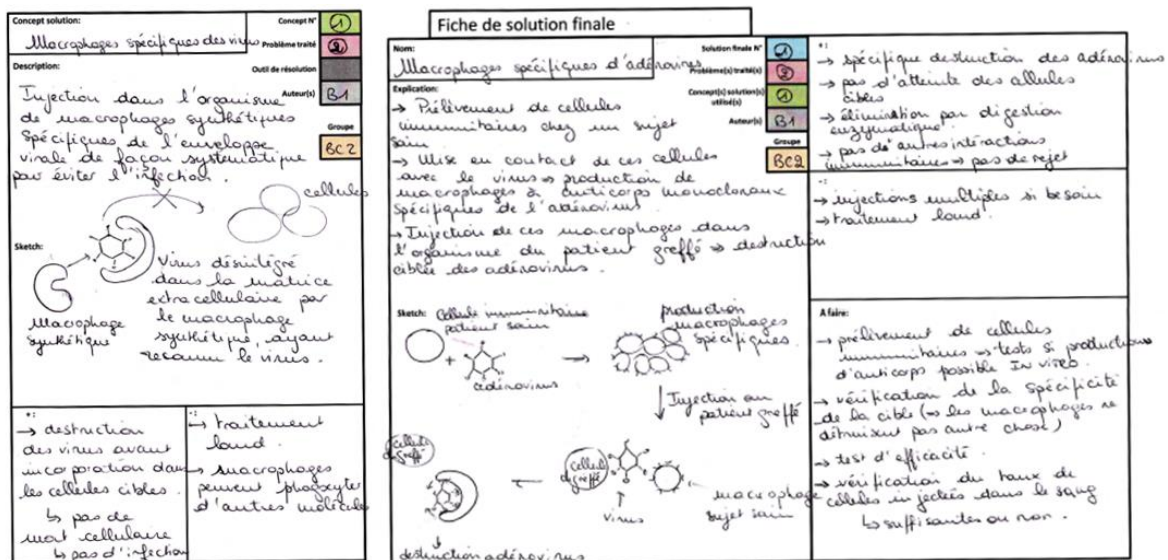 Concept solution:
Concept N°
1
Macrophages spécifiques des virus
Problème traité
2
Description:
Outil de résolution
Auteur(s)
B1
Groupe
BC2
Injection dans l'organisme
de macrophages synthétiques
spécifiques de l'enveloppe
virale de façon systématique
pour éviter l'infection.
cellules
Sketch:
Macrophage
synthétique
virus désintégré
dans la matrice
extracellulaire par
le macrophage
synthétique, ayant
reconnu le virus.
+:
→ destruction
des virus avant
incorporation dans
les cellules cibles.
↳ pas de
mort cellulaire
↳ pas d'infection
-:
→ traitement
lourd.
→ macrophages
peuvent phagocyter
d'autres molécules
Fiche de solution finale
Nom:
Solution finale N°
1
Macrophages spécifiques d'adénovirus
Problème(s) traité(s)
2
Explication:
Concept(s) solution(s)
utilisé(s)
1
Auteur(s)
B1
Groupe
BC2
→ Prélèvement de cellules
immunitaires chez un sujet
sain
→ Mise en contact de ces cellules
avec le virus → production de
macrophages à anticorps monoclonaux
spécifiques de l'adénovirus.
→ Injection de ces macrophages dans
l'organisme du patient greffé → destruction
ciblée des adénovirus.
Sketch:
Cellule immunitaire
patient sain
+
adénovirus
production
macrophages
spécifiques.
Injection au
patient greffé
cellule
du greffé
cellule
du greffé
virus
macrophage
sujet sain
destruction adénovirus
+:
→ spécifique destruction des adénovirus
→ pas d'atteinte des cellules
cibles
→ élimination par digestion
enzymatique.
→ pas de autres interactions
immunitaires → pas de rejet
-:
→ injections multiples si besoin
→ traitement lourd.
A faire:
→ prélèvement de cellules
immunitaires → tests si productions
d'anticorps possible IN VITRO.
→ vérification de la spécificité
de la cible (→ les macrophages ne
détruisent pas autre chose)
→ test d'efficacité.
→ vérification du taux de
cellules injectées dans le sang
↳ suffisantes ou non.